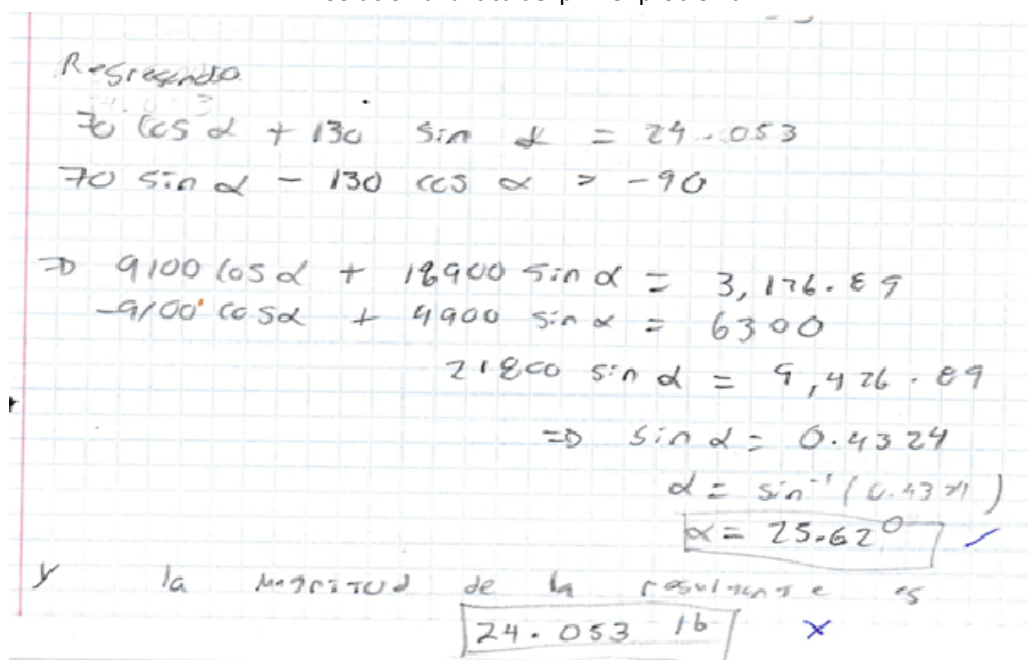 Regresando
70 cos α + 130 sin α = 24.053
70 sin α - 130 cos α = -90
⇒ 9100 cos α + 16900 sin α = 3,126.89
-9100 cos α + 4900 sin α = 6300
21800 sin α = 9,426.89
⇒ sin α = 0.4324
α = sin⁻¹ (0.4324)
α = 25.62°
y la magnitud de la resultante es
24.053 lb